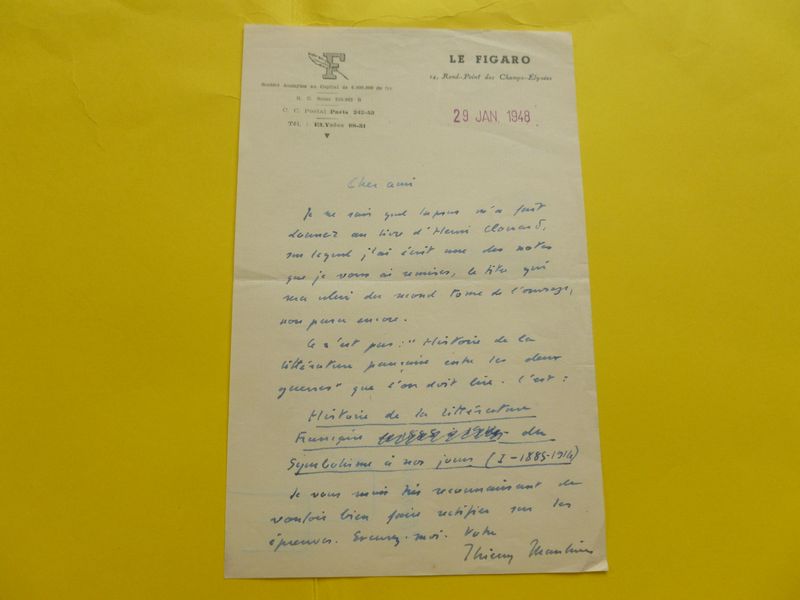 F
LE FIGARO
14, Rond-Point des Champs-Élysées
Société Anonyme au Capital de 6.000.000 de frs
R. C. Seine
C. C. Postal Paris 242-53
Tél. : ELYsées 98-31
29 JAN. 1948
Cher ami
Je ne sais quel lapsus m'a fait
donner au livre d'Henri Clouard,
sur lequel j'ai écrit une des notes
que je vous ai remises, le titre qui
sera celui du second tome de l'ouvrage,
non paru encore.
Ce n'est pas : "Histoire de la
littérature française entre les deux
guerres" que l'on doit lire. C'est :
Histoire de la littérature
Française du
Symbolisme à nos jours (I - 1885-1914)
Je vous serais très reconnaissant de
vouloir bien faire rectifier sur les
épreuves. Excusez-moi. Votre
Thierry Maulnier